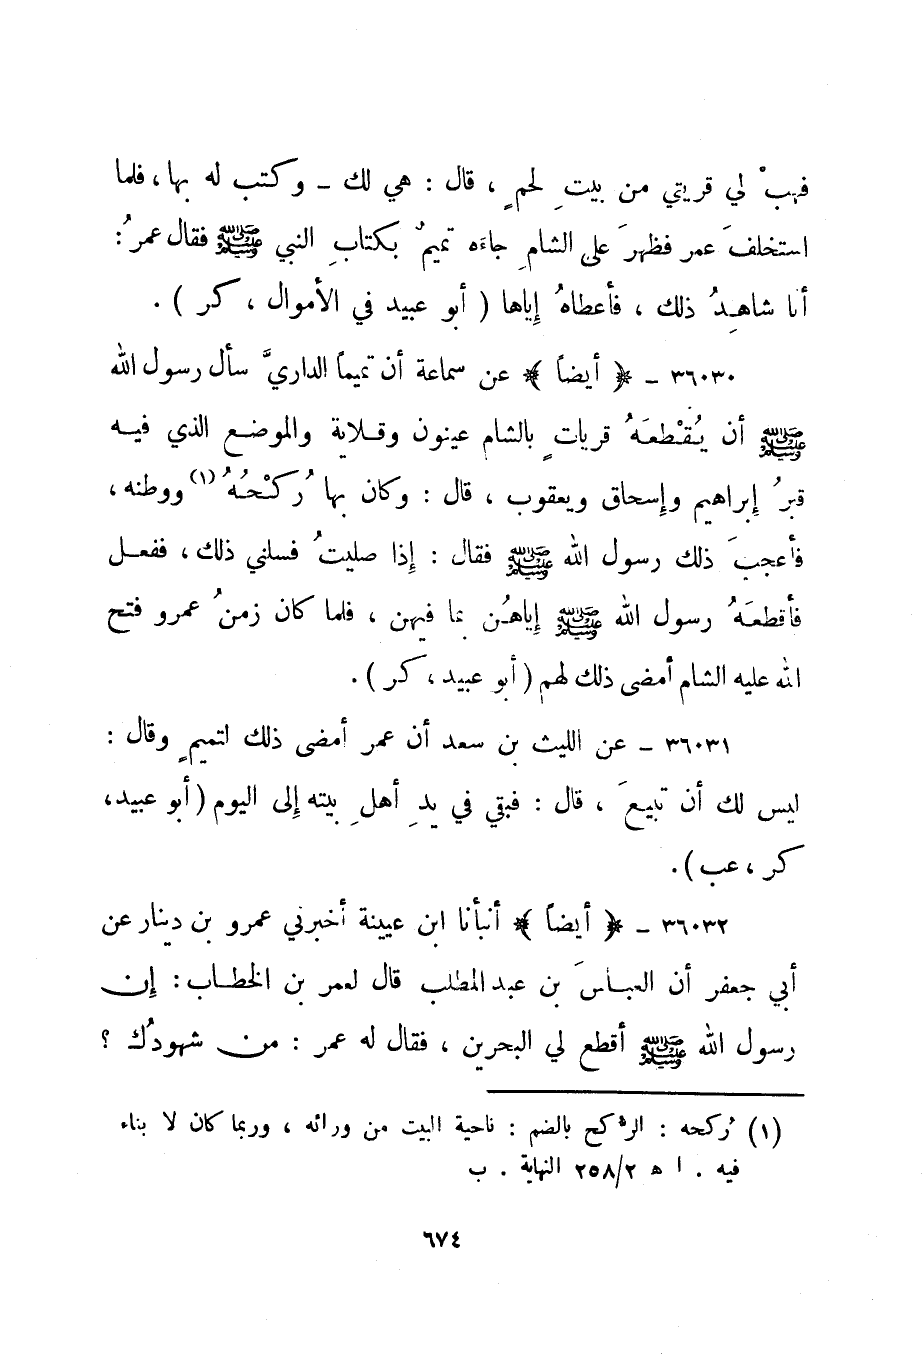 فهبْ لي قريتي من بيتِ لحمٍ ، قال : هي لك ـ وكتب له بها ، فلما
استخلفَ عمر فظهرَ على الشامِ جاءَه تميمٌ بكتابِ النبي ﷺ فقال عمرُ :
أنا شاهِدُ ذلك ، فأعطاهُ إياها ( أبو عبيد في الأموال ، كر ) .
٣٦٠٣٠ ـ ﴿ أيضاً ﴾ عن سماعة أن تميماً الداريَّ سأل رسول الله
ﷺ أن يُقْطعَهُ قرياتٍ بالشام عينون وقلاية والموضع الذي فيه
قبرُ إبراهيم وإسحاق ويعقوب ، قال : وكان بها رُكْحُهُ (١) ووطنه ،
فأعجبَ ذلك رسول الله ﷺ فقال : إذا صليتُ فسلني ذلك ، ففعل
فأقطعَهُ رسول الله ﷺ إياهُن بما فيهن ، فلما كان زمنُ عمرو فتح
الله عليه الشام أمضى ذلك لهم ( أبو عبيد ، كر ) .
٣٦٠٣١ ـ عن الليث بن سعد أن عمر أمضى ذلك لتميمٍ وقال :
ليس لك أن تبيعَ ، قال : فبقي في يدِ أهلِ بيته إلى اليوم ( أبو عبيد ،
كر ، عب ) .
٣٦٠٣٢ ـ ﴿ أيضاً ﴾ أنبأنا ابن عيينة أخبرني عمرو بن دينار عن
أبي جعفر أن العباسَ بن عبد المطلب قال لعمر بن الخطاب : إن
رسول الله ﷺ أقطع لي البحرين ، فقال له عمر : من شهودُك ؟
(١) رُكحه : الرُّكح بالضم : ناحية البيت من ورائه ، وربما كان لا بناء
فيه . ا ه ٢/٢٥٨ النهاية . ب
٦٧٤